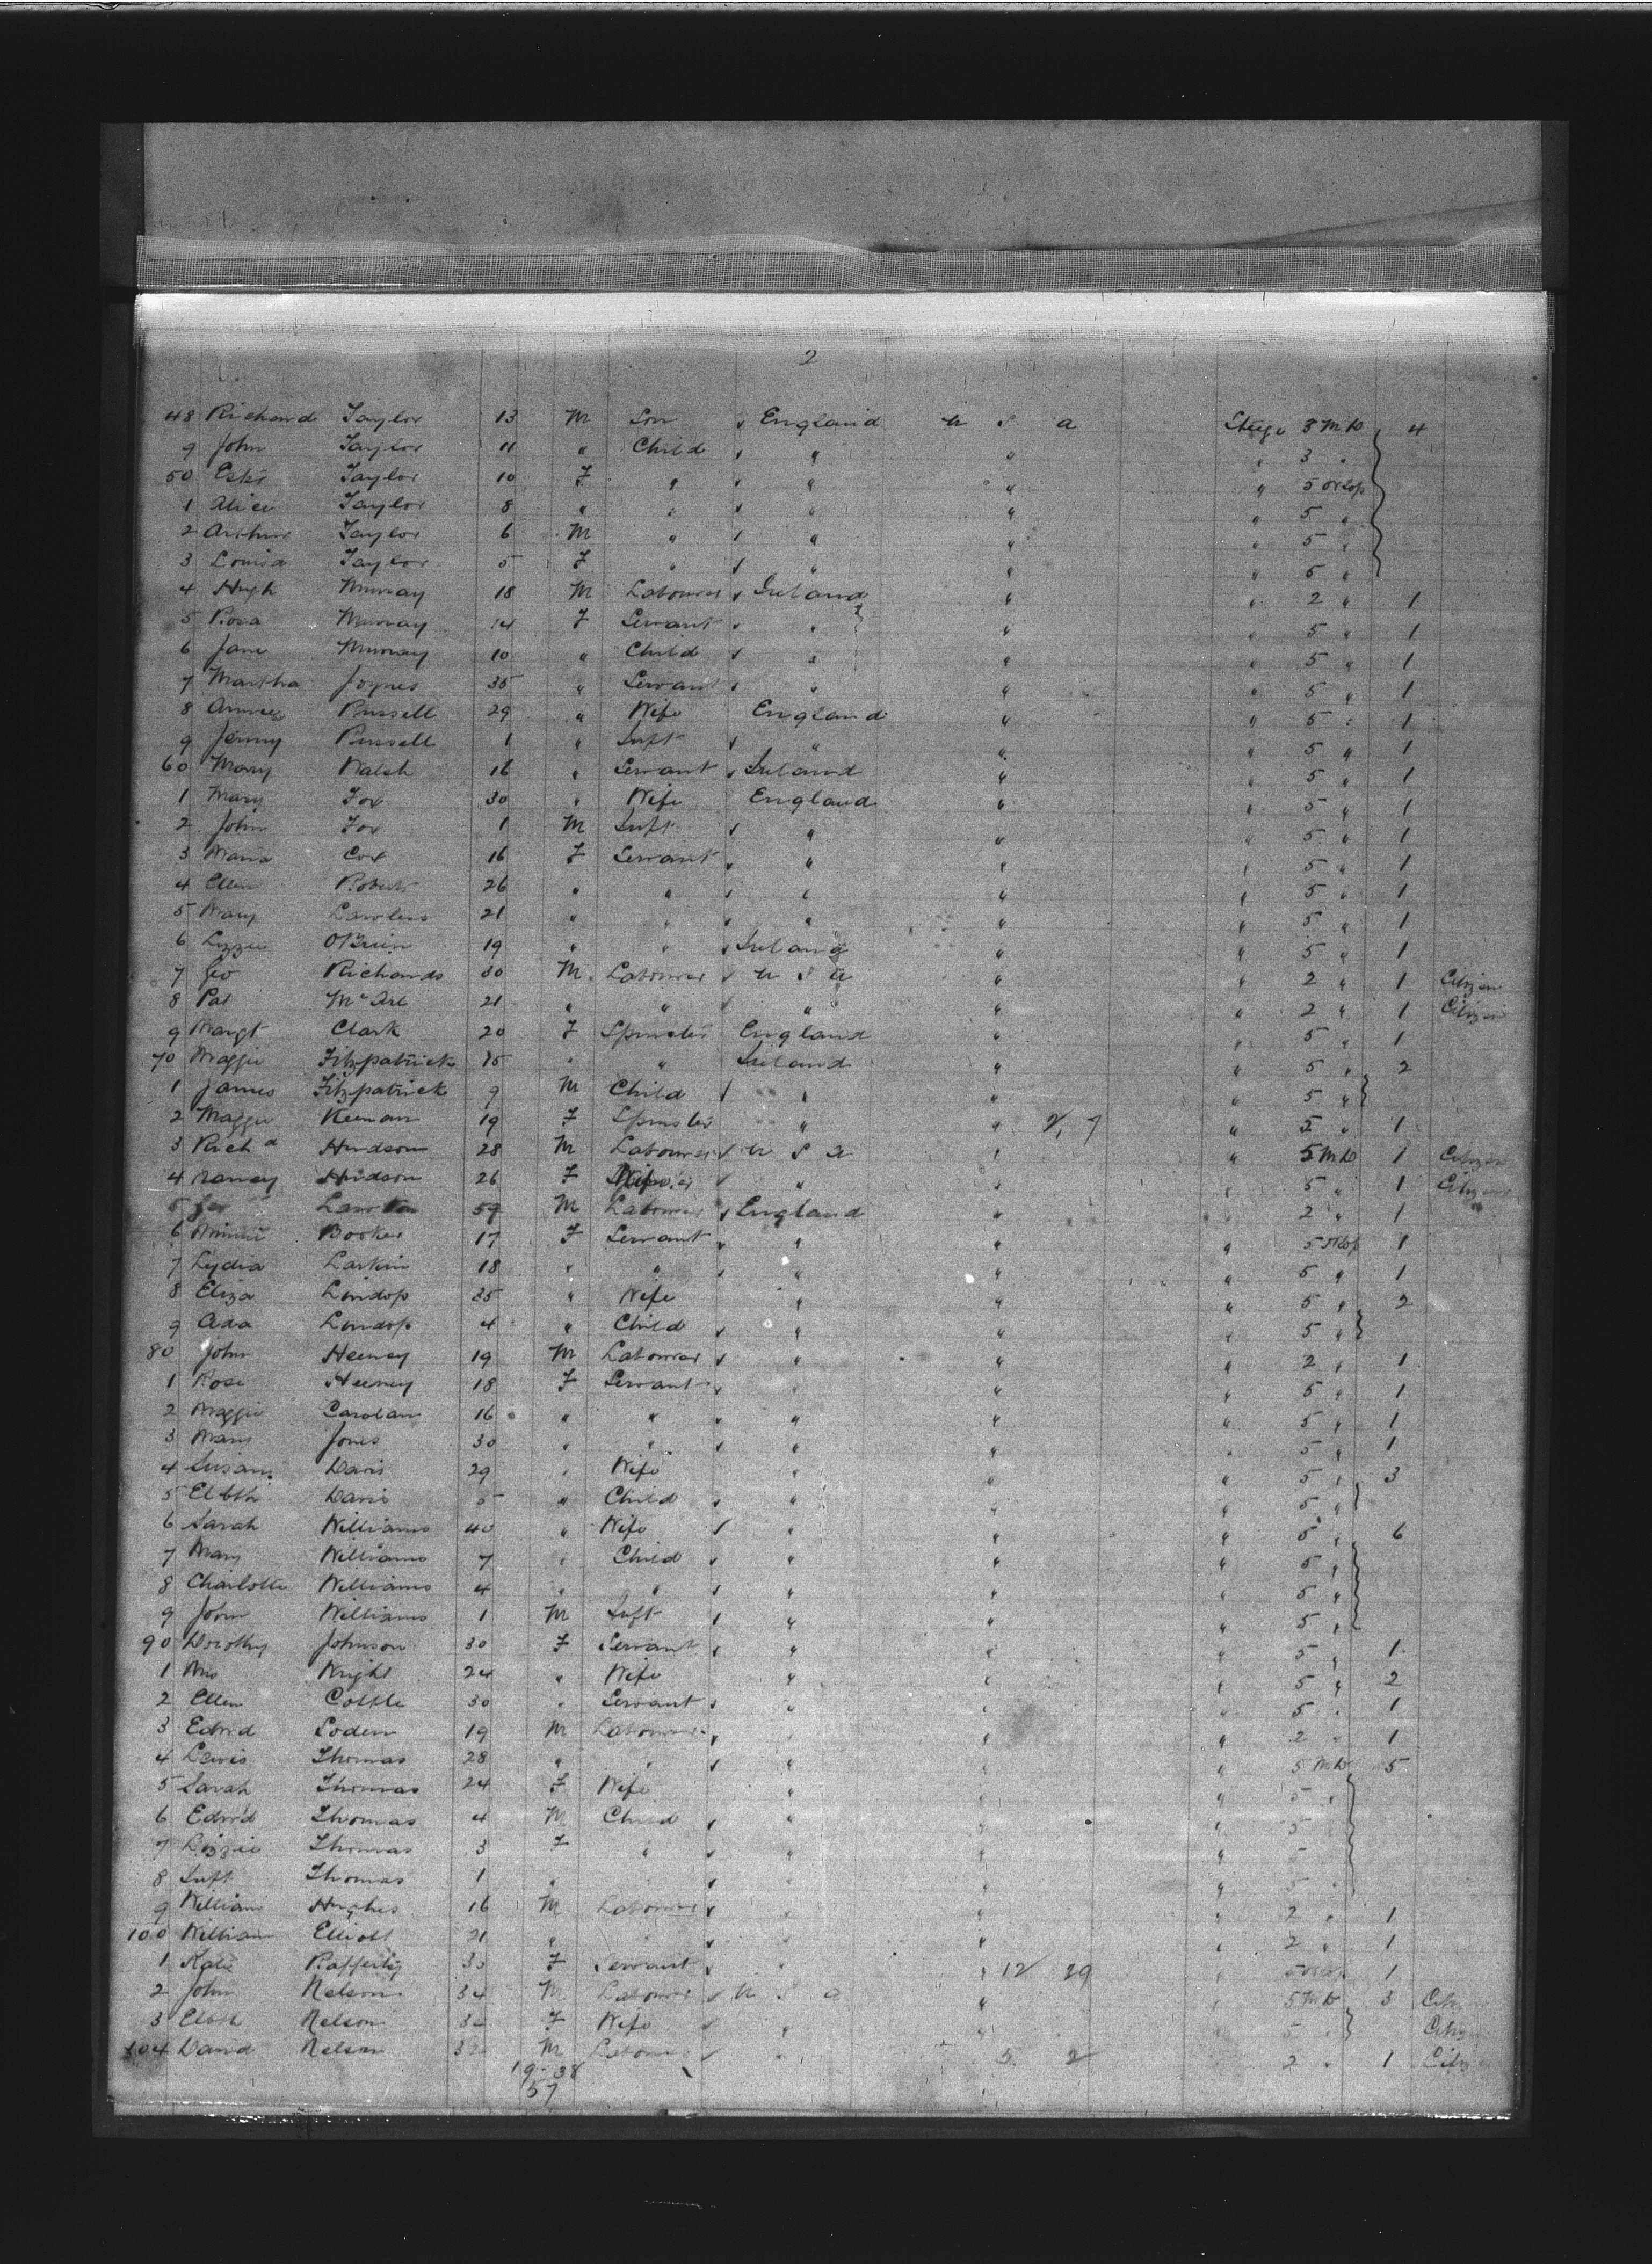 2
48 Richard Taylor 13 M Son ✓ England U S A Steege 3 Mid 4
9 John Taylor 11 " Child ✓ " " " 3 "
50 Taylor 10 F " ✓ " " " 5 Orlop
1 Alice Taylor 8 " " ✓ " " " 5 "
2 Arthur Taylor 6 M " ✓ " " " 5 "
3 Louisa Taylor 5 F " ✓ " " " 5 "
4 Hugh Murray 18 M Labourer ✓ Ireland " " 2 " 1
5 Rosa Murray 14 F Servant ✓ " " " 5 " 1
6 Jane Murray 10 " Child ✓ " " " 5 " 1
7 Martha Joynes 35 " Servant ✓ " " " 5 " 1
8 Annie Russell 29 " Wife England " " 5 " 1
9 Jenny Russell 1 " Inft ✓ " " " 5 " 1
60 Mary Walsh 16 " Servant ✓ Ireland " " 5 " 1
1 Mary Fox 30 " Wife England " " 5 " 1
2 John Fox 1 M Inft ✓ " " " 5 " 1
3 Maria Cox 16 F Servant ✓ " " " 5 " 1
4 Ellen Roberts 26 " " ✓ " " " 5 " 1
5 Mary 21 " " ✓ " " " 5 " 1
6 Lizzie OBrien 19 " " ✓ Ireland " " 5 " 1
7 Geo Richards 30 M Labourer ✓ U S A " " 2 " 1 Citizen
8 Pat 21 " " ✓ " " " 2 " 1 Citizen
9 Margt Clark 20 F Spinster England " " 5 " 1
70 Maggie Fitzpatrick 35 " " Ireland " " 5 " 2
1 James Fitzpatrick 9 M Child ✓ " " " 5 "
2 Maggie Keenan 19 F Spinster " " " 5 " 1
3 Richd Hudson 28 M Labourer ✓ U S A " " 5 Mid 1 Citizen
4 Nancy Hudson 26 F Wife ✓ " " " 5 " 1 Citizen
5 Lawton 59 M Labourer ✓ England " " 2 " 1
6 Minnie Booker 17 F Servant ✓ " " " 5 Orlop 1
7 Lydia Larkin 18 " " ✓ " " " 5 " 1
8 Eliza Lindop 35 " Wife " " " 5 " 2
9 Ada Lindop 4 " Child ✓ " " " 5 "
80 John Heeney 19 M Labourer ✓ " " " 2 " 1
1 Rose Heeney 18 F Servant ✓ " " " 5 " 1
2 Maggie Carolan 16 " " ✓ " " " 5 " 1
3 Mary Jones 30 " " ✓ " " " 5 " 1
4 Susan Davis 29 " Wife " " " 5 " 3
5 Elbth Davis 5 " Child ✓ " " " 5 "
6 Sarah Williams 40 " Wife ✓ " " " 5 " 6
7 Mary Williams 7 " Child ✓ " " " 5 "
8 Charlotte Williams 4 " " ✓ " " " 5 "
9 John Williams 1 M Inft ✓ " " " 5 "
90 Dorothy Johnson 30 F Servant ✓ " " " 5 " 1
1 Mrs Wright 24 " Wife " " " 5 " 2
2 Ellen Cottle 30 " Servant ✓ " " " 5 " 1
3 Edwd Soden 19 M Labourer ✓ " " " 2 " 1
4 Lewis Thomas 28 " " ✓ " " " 5 Mid 5
5 Sarah Thomas 24 F Wife " " " 5 "
6 Edwd Thomas 4 M Child ✓ " " " 5 "
7 Lizzie Thomas 3 F " ✓ " " " 5 "
8 Inft Thomas 1 " " ✓ " " " 5 "
9 William Hughes 16 M Labourer ✓ " " " 2 " 1
100 William Elliott 21 " " ✓ " " " 2 " 1
1 Kate Rafferty F Servant ✓ " " 12 29 " 5 Orlop 1
2 John Nelson 34 M Labourer ✓ U S A " " 5 Mid 3
3 Elbth Nelson F Wife ✓ " " " 5 "
104 David Nelson M Labourer ✓ " 5 2 2 " 1
19-38
57